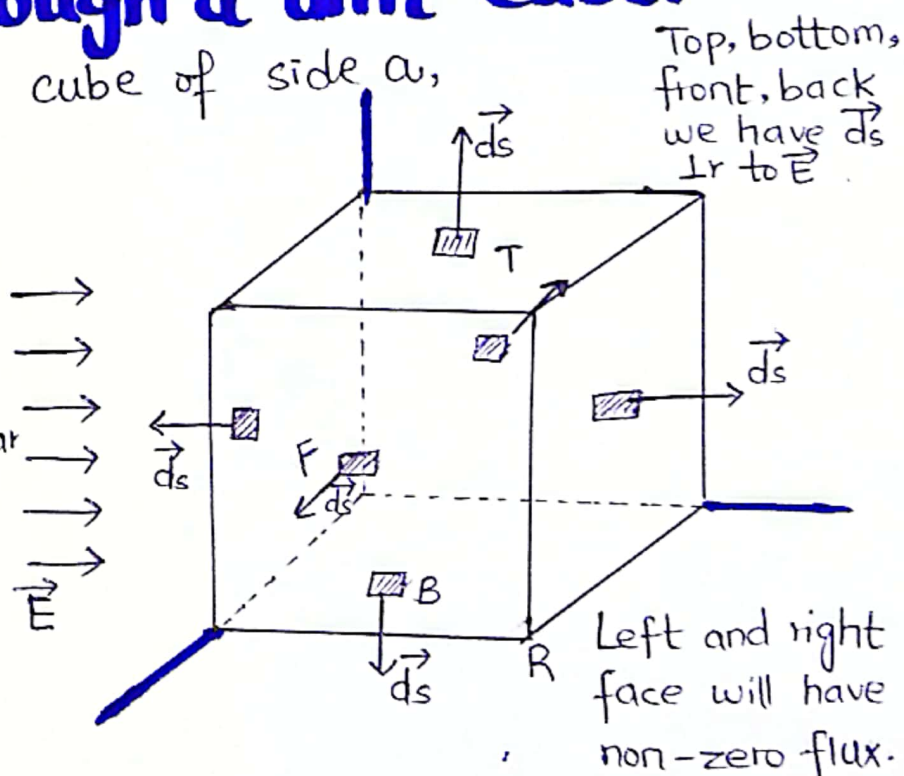 cube of side a,
Top, bottom,
front, back
we have ds
⊥r to E
ds
T
ds
ds
F
ds
B
E
ds
R
Left and right
face will have
non-zero flux.